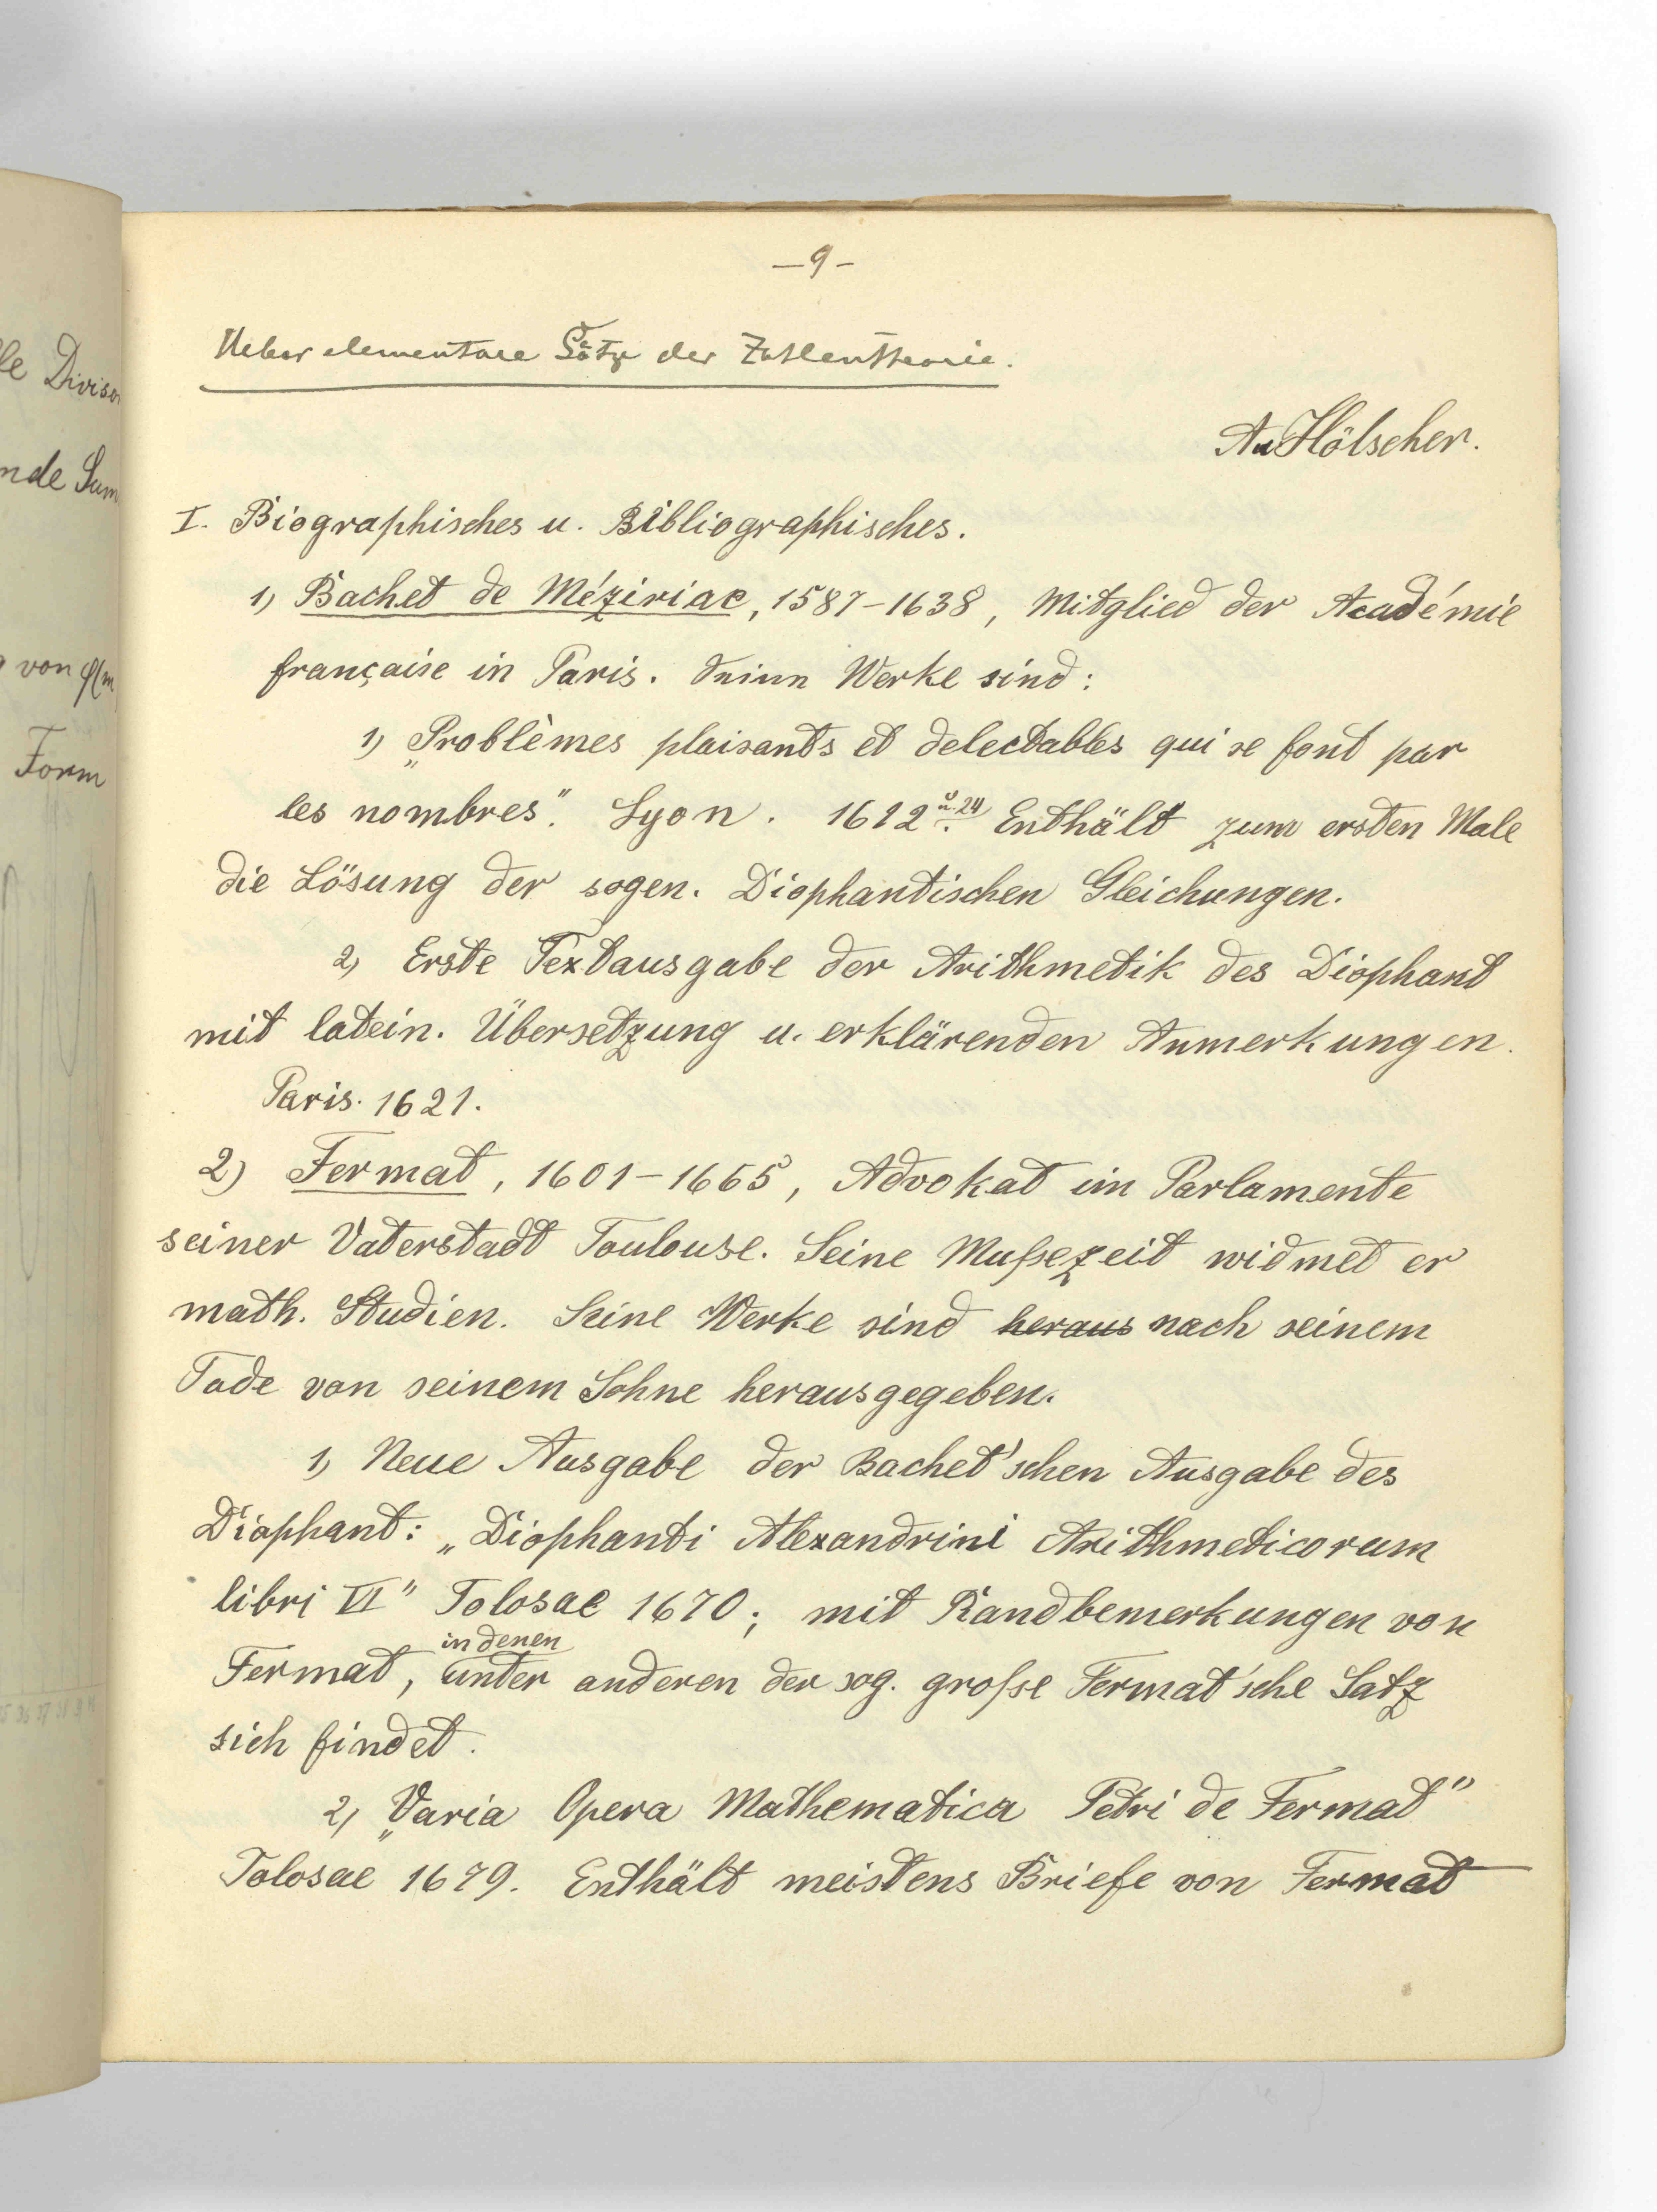 —9—
Ueber elementare Sätze der Zahlentheorie.
Au Hölscher.
I. Biographisches u. Bibliographisches.
1) Bachet de Méziriac, 1587–1638, Mitglied der Académie
française in Paris. Seine Werke sind:
1) „Problèmes plaisants et delectables qui se font par
les nombres". Lyon. 1612 u. 24. Enthält zum ersten Male
die Lösung der sogen. Diophantischen Gleichungen.
2) Erste Textausgabe der Arithmetik des Diophant
mit latein. Übersetzung u. erklärenden Anmerkungen.
Paris. 1621.
2) Fermat, 1601–1665, Advokat im Parlamente
seiner Vaterstadt Toulouse. Seine Mußezeit widmet er
math. Studien. Seine Werke sind heraus nach seinem
Tode von seinem Sohne herausgegeben.
1) Neue Ausgabe der Bachet'schen Ausgabe des
Diophant: „Diophanti Alexandrini Arithmeticorum
libri VI" Tolosae 1670; mit Randbemerkungen von
in denen
Fermat, unter anderen der sog. große Fermat'sche Satz
sich findet.
2) „Varia Opera Mathematica Petri de Fermat"
Tolosae 1679. Enthält meistens Briefe von Fermat
le Divisor
nde Sum
von φ(m
Form